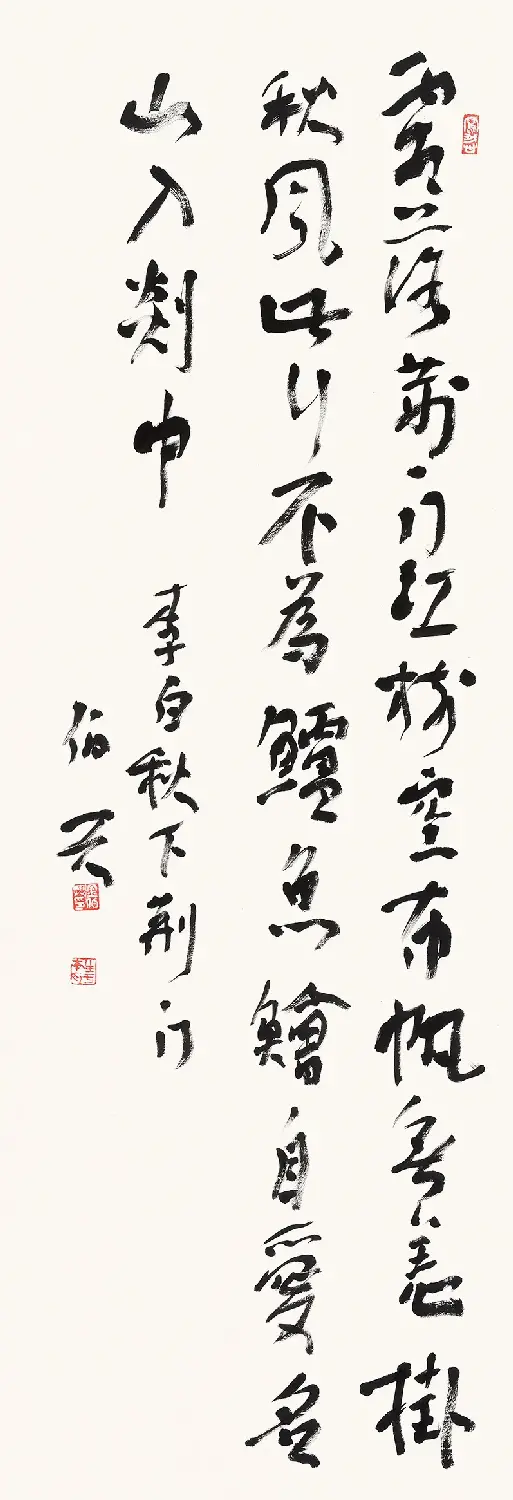 霜落荆门江樹空布帆無恙掛
秋風此行不為鱸魚鱠自愛名
山入剡中
李白秋下荆门
伯